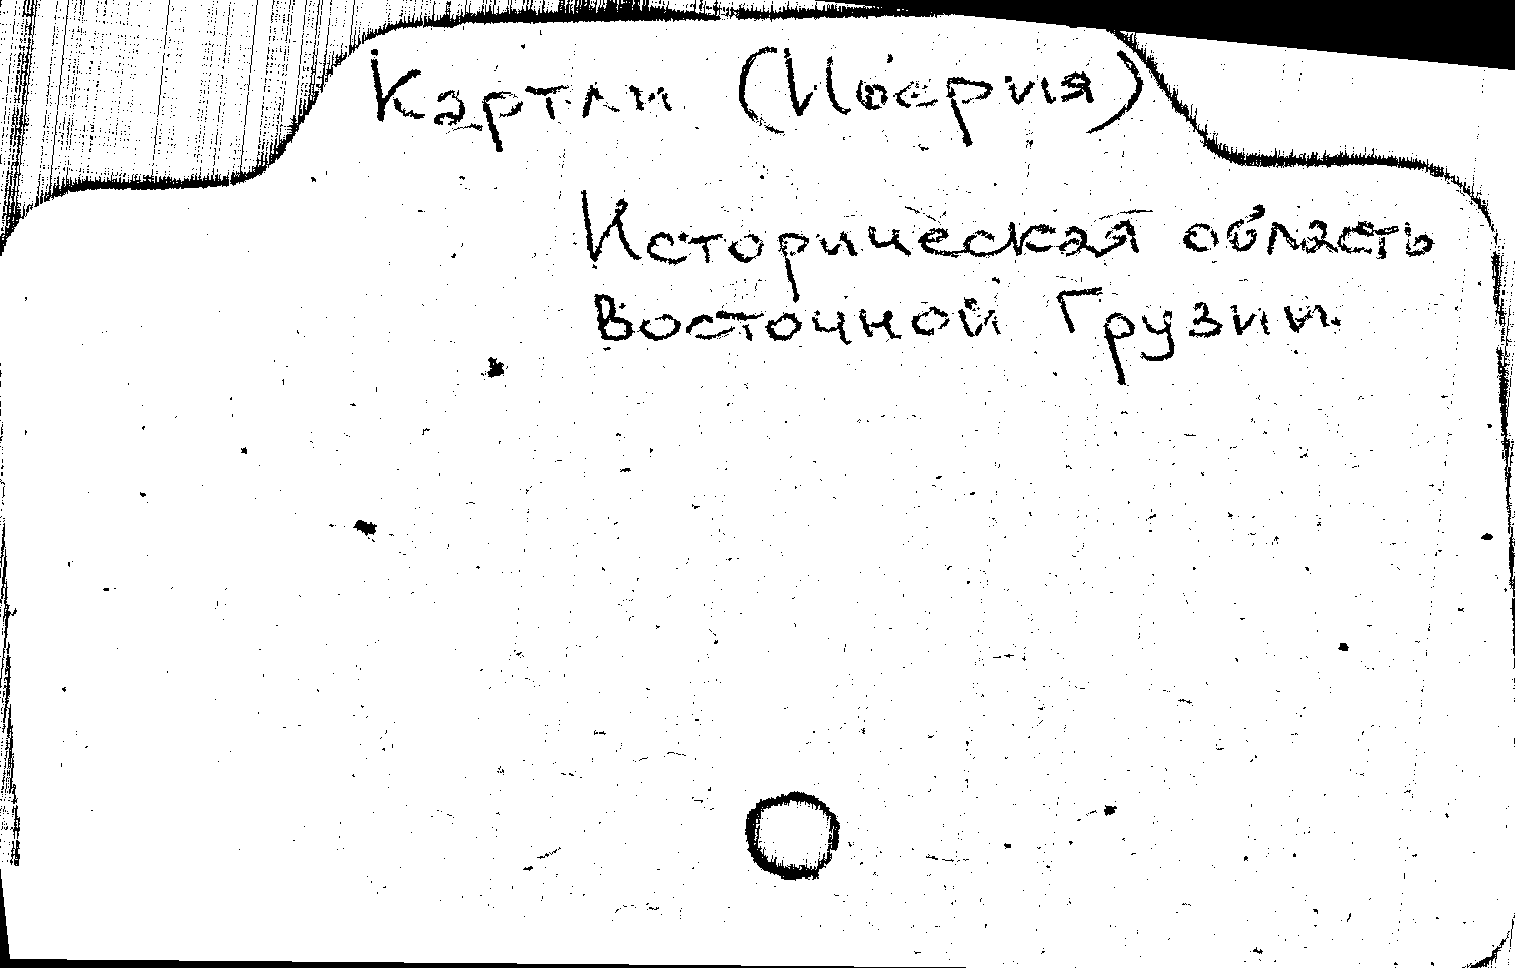 Картли (Иберия)
Историческая область
Восточной Грузии.